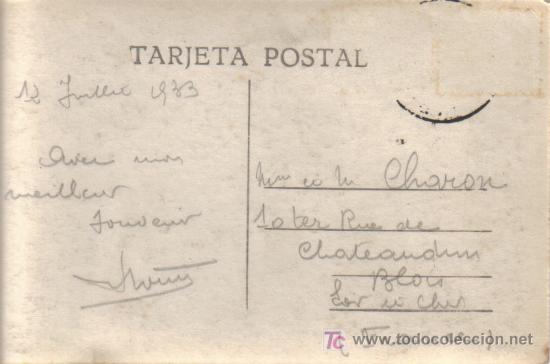 TARJETA POSTAL
12 Juillet 1933
Avec mon
meilleur
Souvenir
Mme et M Charon
10 ter Rue de
Chateaudun
Blois
Loir et Cher
TC www.todocoleccion.net